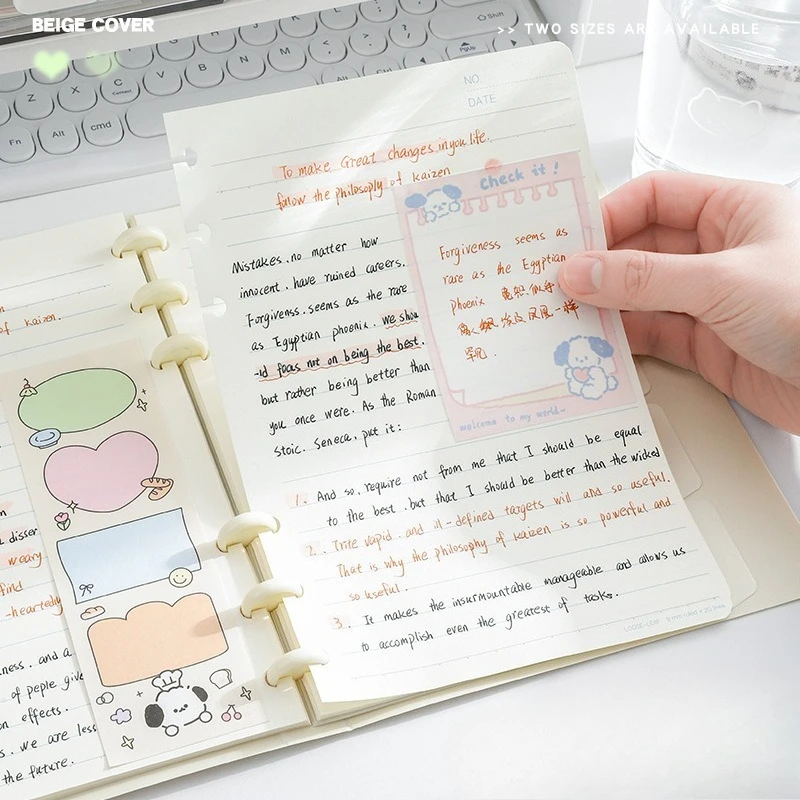 BEIGE COVER
>> TWO SIZES ARE AVAILABLE
Shift
PgUp
Z X C V B N M
Fn Alt cmd
Alt Ctrl
NO
DATE
To make Great changes in you life.
follow the philosoply of kaizen
Mistakes. no matter how
innocent. have ruined careers.
Forgivenss. seems as the rare
as Egyptian phoenix. we shou
-ld focus not on being the best.
but rather being better than
you once were. As the Roman
Stoic. Seneca. put it:
Check it!
Forgiveness seems as
rare as the Egyptian
phoenix
一样
罕见.
welcome to my world~
1. And so, require not from me that I should be equal
to the best. but that I should be better than the wicked
2. Trite vapid. and ill-defined targets will and so useful.
That is why the philosophy of kaizen is so powerful and
so useful.
3. It makes the insurmountable manageable and allows us
to accomplish even the greatest of tasks.
LOOSE-LEAF
of kaizen.
weary
find
-heartedly
ness. and a
of peple give
on effects.
s. we are less
the future.